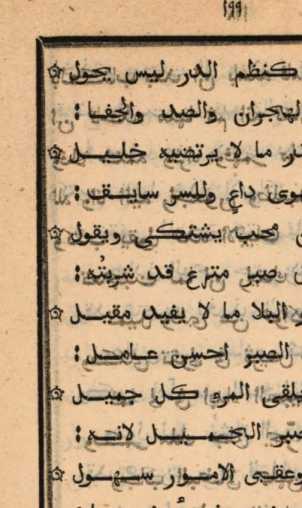 ١٩٩
كنظم الدر ليس يحول
الهجران والصد والجفا :
ما لا يرتضيه خليل
داع وللسر سايق :
محب يشتكي ويقول
صبر مترع قد شربته :
البلا ما لا يفيد مقيل
الصبر احسن عامل :
يلقى المرء كل جميل
الجميل لانه :
وعقبى الامور سهول